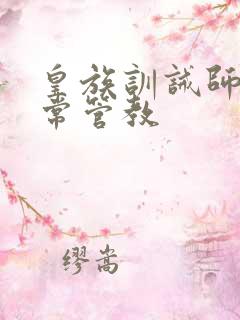 皇族訓誡師
常管教
缪嵩